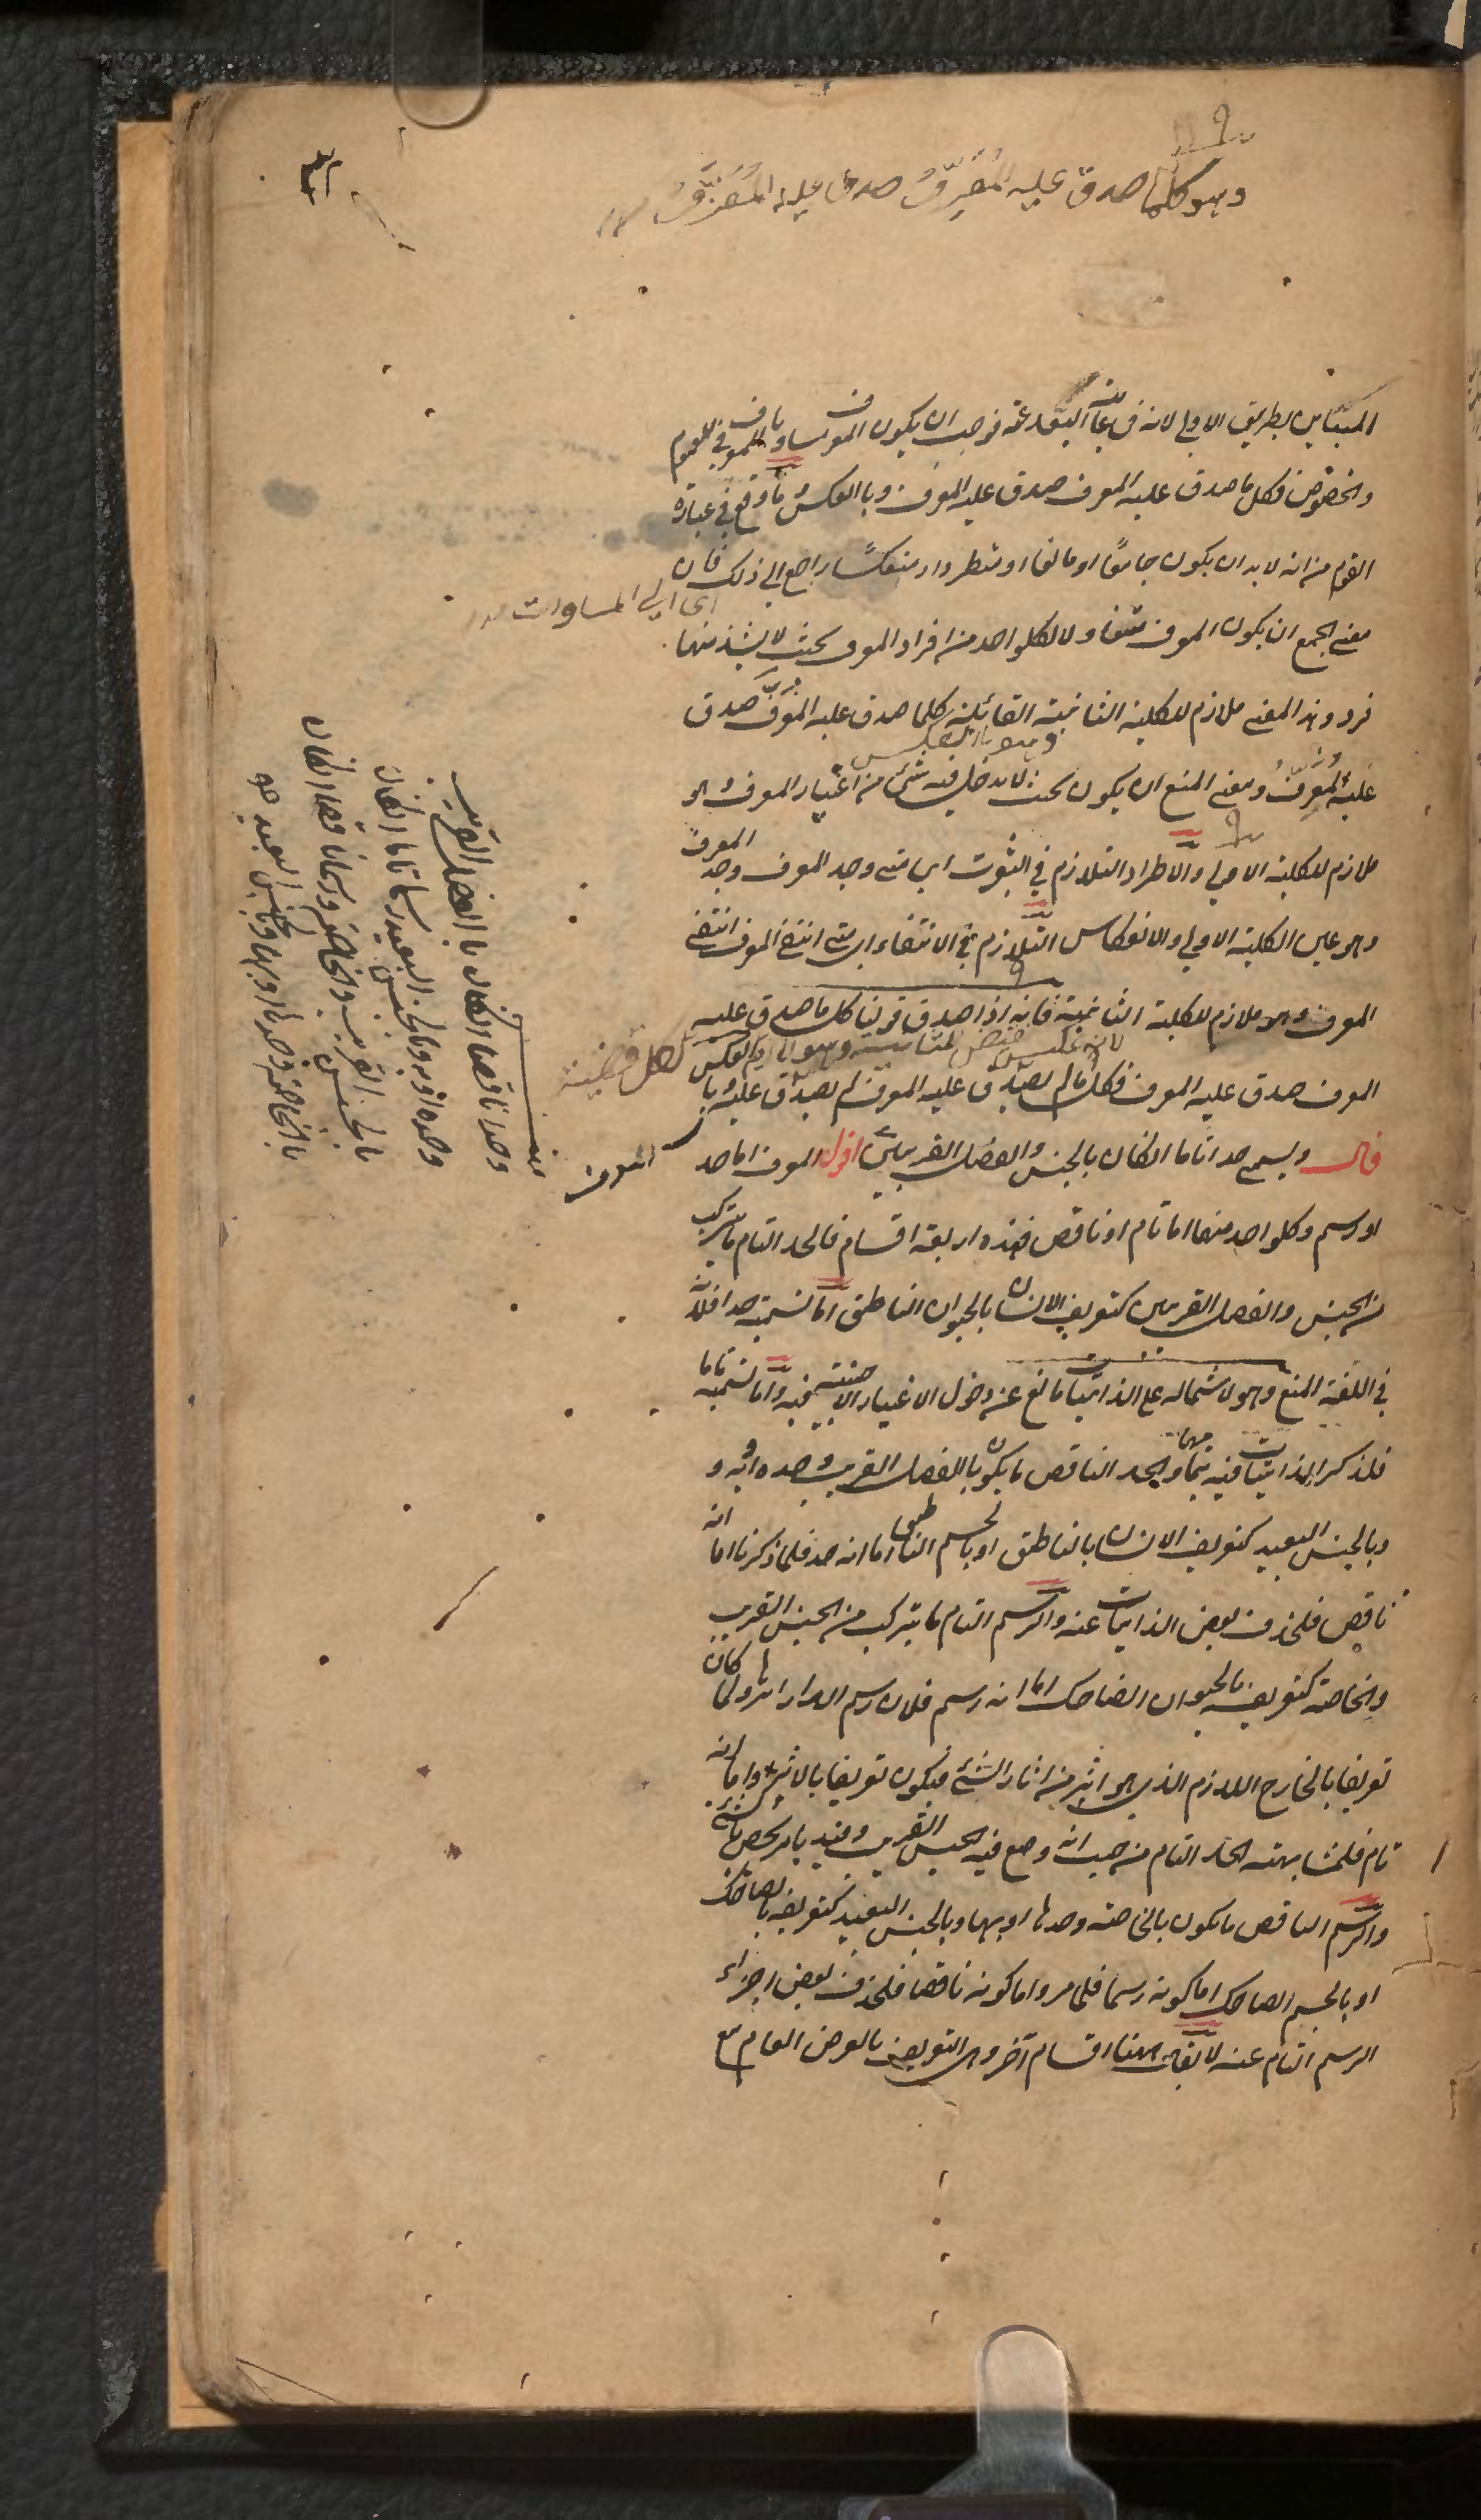 وهو كلما صدق عليه المُعَرِّفُ صدق عليه المُعَرَّفُ
المباين بطريق الاولى لانه فى غاية البعد عنه فوجب ان يكون المعرف مساويا للمعرف فى العموم
والخصوص فكل ما صدق عليه المعرف صدق عليه المعرف وبالعكس وما وقع فى عبارة
القوم من انه لا بد ان يكون جامعًا او مانعا او مطردا او منعكسًا راجع الى ذلك فان
اى الى المساوات
معنى الجمع ان يكون المعرف متناولا لكلواحد من افراد المعرف بحيث لا يشذ منها
فرد وهذا المعنى ملازم للكلية الثانية القائلة كلما صدق عليه المُعَرَّفُ صدق
وهو بالعكس
عليه المُعَرِّفُ ومعنى المنع ان يكون بحيث لا يدخل فيه شئ من اغيار المعرف وهو
ملازم للكلية الاولى والاطراد التلازم فى الثبوت اى متى وجد المعرف وجد المعرف
وهو عين الكلية الاولى والانعكاس التلازم فى الانتفاء اى متى انتفى المعرف انتفى
المعرف وهو ملازم للكلية الثانية فانه اذا صدق قولنا كل ما صدق عليه
المعرف صدق عليه المعرف فكل ما لم يصدق عليه المعرف لم يصدق عليه المعرف وبالعكس
قال ويسمى حدا تاما ان كان بالجنس والفصل القريبين اقول المعرف اما حد
او رسم وكلواحد منهما اما تام او ناقص فهذه اربعة اقسام فالحد التام ما يتركب
من الجنس والفصل القريبين كتعريف الانسان بالحيوان الناطق اما تسميته حدا فلانه
فى اللغة المنع وهو لاشتماله على الذاتيات مانع عن دخول الاغيار الاجنبية فيه واما تسميته تاما
فلذكر الذاتيات فيه بتمامها والحد الناقص ما يكون بالفصل القريب وحده او به و
وبالجنس البعيد كتعريف الانسان بالناطق او بالجسم الناطق اما انه حد فلما ذكرنا اما انه
ناقص فلحذف بعض الذاتيات عنه والرسم التام ما يتركب من الجنس القريب
والخاصة كتعريفه بالحيوان الضاحك اما انه رسم فلان رسم الدار اثرها ولما كان
تعريفا بالخارج اللازم الذى هو اثر من اثار الشئ فيكون تعريفا بالاثر واما انه
تام فلمشابهته الحد التام من حيث انه وضع فيه الجنس القريب وقيد بامر يختص بالشئ
والرسم الناقص ما يكون بالخاصة وحدها او بها وبالجنس البعيد كتعريفه بالضاحك
او بالجسم الضاحك اما كونه رسما فلما مر واما كونه ناقصا فلحذف بعض اجزاء
الرسم التام عنه لا يقال ههنا اقسام آخر وهى التعريف بالعرض العام مع
وحدا ناقصا ان كان بالفصل القريب
وحده او به وبالجنس البعيد ورسما تاما ان كان
بالجنس القريب والخاصة ورسما ناقصا ان كان
بالخاصة وحدها او بها وبالجنس البعيد